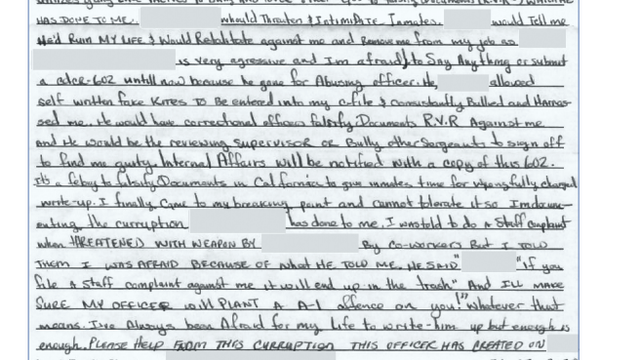 HAS DONE TO ME. would Threaten & Intimidate, Inmates. would Tell me
He'd Ruin MY LIFE & Would Retaliate against me and Remove me from my job as
is very aggressive and Im afraid to Say Anything or submit
a cdcr-602 untill now because he gone for Abusing officer. He, allowed
self written fake Kites To Be entered into my c-file & constantly Bullied and Harras-
sed me. He would have correctional officers falsify Documents R.V.R Against me
and He would be the reviewing supervisor or Bully other Sergeants to sign off
to find me guity. Internal Affairs will be notified with a copy of this 602.
It's a felony to falsify Documents in California to give inmates time for wrongfully charged
write-up. I finally came to my breaking point and cannot tolerate it so Im docum-
enting the curruption has done to me. I was told to do a Staff complaint
when THREATENED WITH WEAPON BY By Co-workers But I TOLD
THEM I WAS AFRAID BECAUSE OF what HE TOLD ME. HE SAID" "If you
file a Staff complaint against me it will end up in the trash" And I'LL MAKE
SURE MY OFFICER will PLANT A A-1 offence on you!" Whatever that
means. I've Always been Afraid for my Life to write-him up but enough is
enough. PLEASE HELP FROM THIS CURRUPTION THIS OFFICER HAS CREATED ON